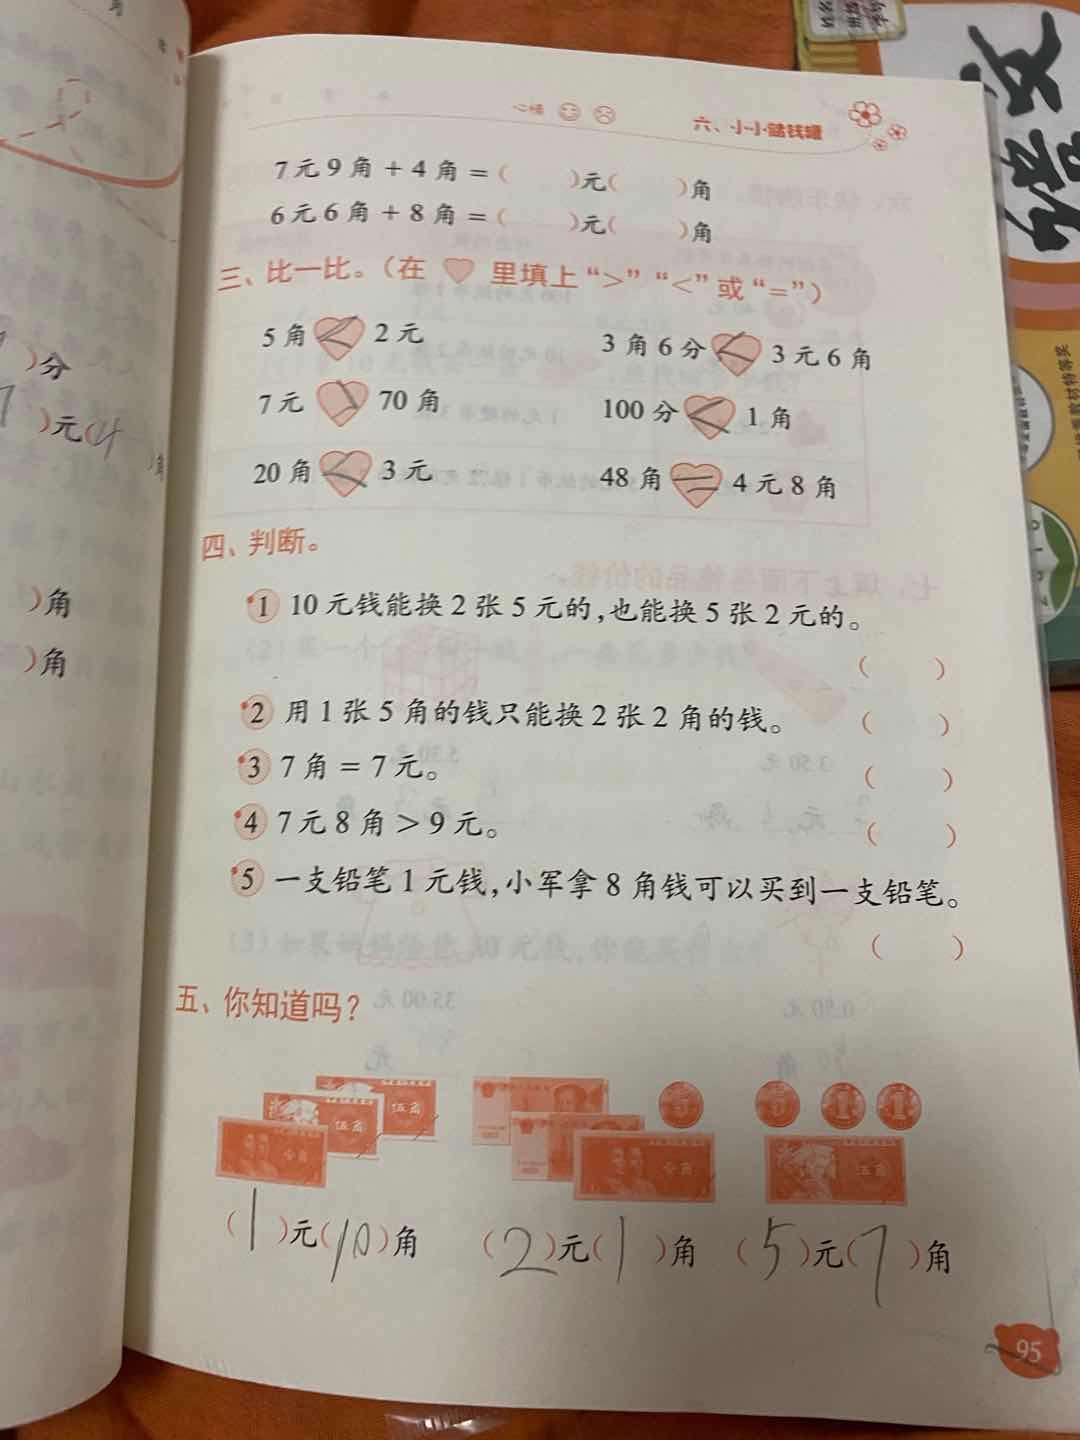 六、小小储钱罐
7元9角+4角=(  )元(  )角
6元6角+8角=(  )元(  )角
三、比一比。(在 里填上“>”“<”或“=”)
5角 < 2元 3角6分 < 3元6角
7元 70角 100分 < 1角
20角 < 3元 48角 = 4元8角
四、判断。
1 10元钱能换2张5元的,也能换5张2元的。
(  )
2 用1张5角的钱只能换2张2角的钱。 (  )
3 7角=7元。 (  )
4 7元8角>9元。 (  )
5 一支铅笔1元钱,小军拿8角钱可以买到一支铅笔。
(  )
五、你知道吗?
伍角
伍角 5 5 1 1
壹角 壹角 伍角
(1)元(10)角 (2)元(1)角 (5)元(7)角
95
)分
)元(4
角
)角
)角
语文